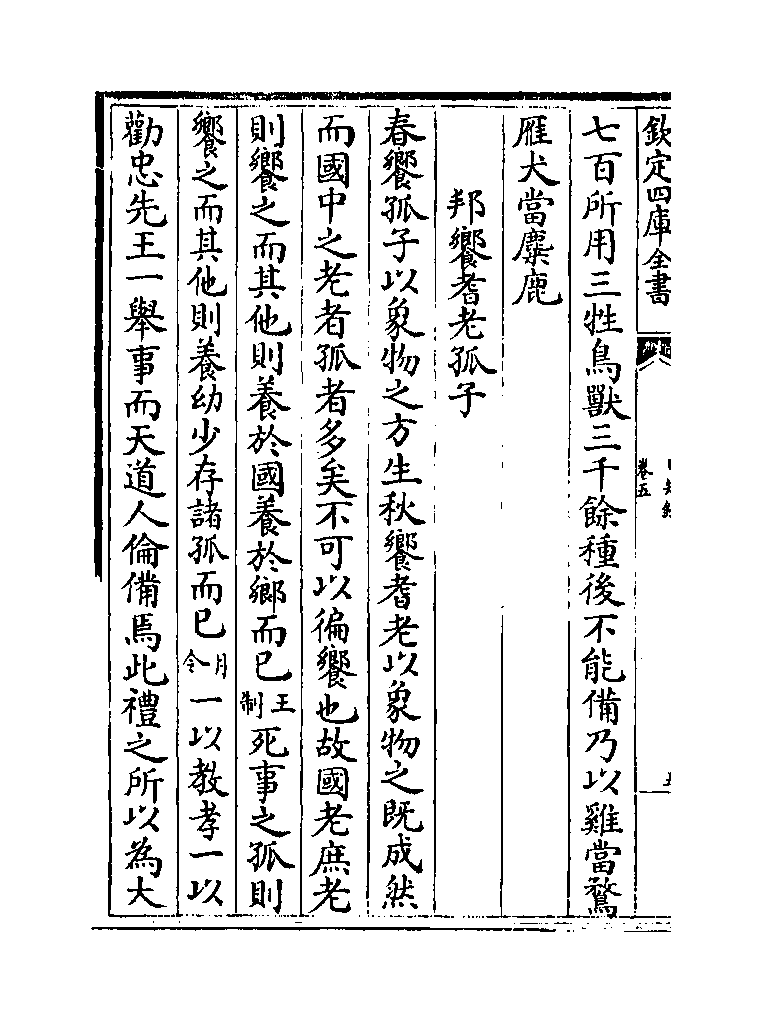 欽定四庫全書
卷五
七百所用三牲鳥獸三千餘種後不能備乃以雞當鶩
雁犬當麋鹿
邦饗耆老孤子
春饗孤子以象物之方生秋饗耆老以象物之既成然
而國中之老者孤者多矣不可以徧饗也故國老庶老
則饗之而其他則養於國養於鄉而已王制死事之孤則
饗之而其他則養幼少存諸孤而已月令一以教孝一以
勸忠先王一舉事而天道人倫備焉此禮之所以為大